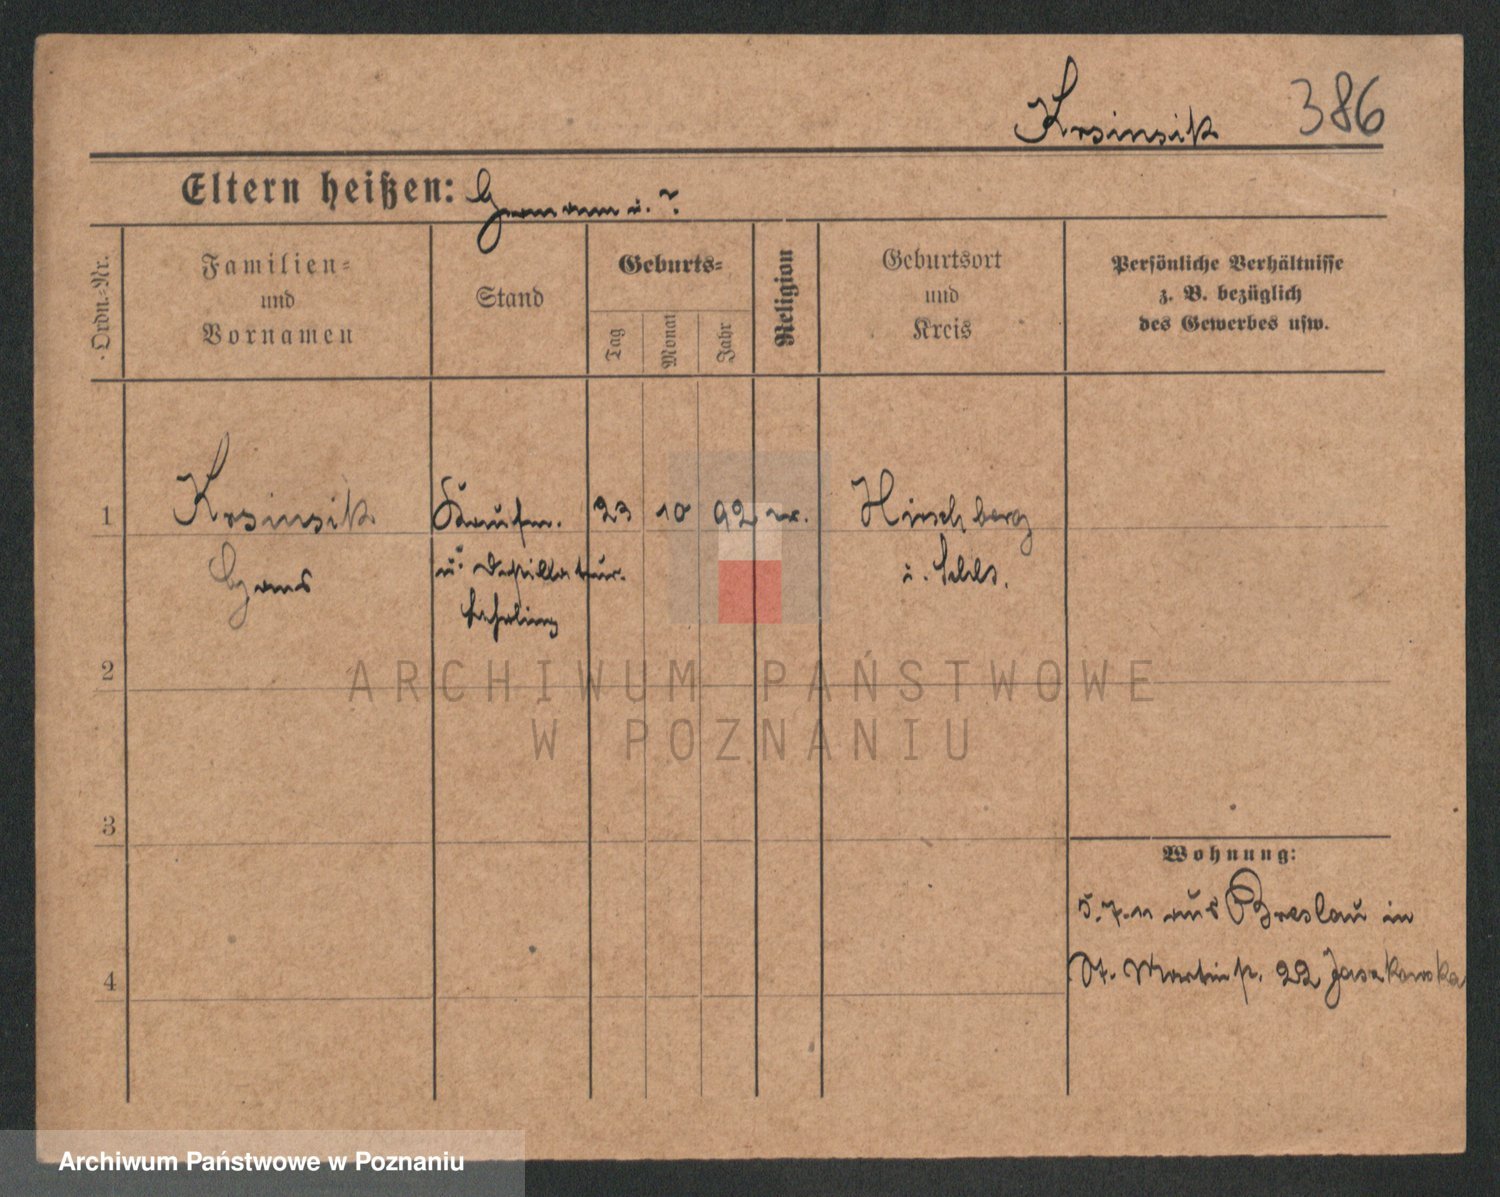 Krsinsik 386
Eltern heißen: Hermann u. ?
Ordn.-Nr.
Familien-
und
Vornamen
Stand
Geburts-
Tag
Monat
Jahr
Religion
Geburtsort
und
Kreis
Persönliche Verhältnisse
z. B. bezüglich
des Gewerbes usw.
1 Krsinsik Kaufm. 23 10 92 Hirschberg
Hans u. Destillateur. i. Schls.
Lehrling
2
3
4
Wohnung:
5.7.11 aus Breslau in
St. Martinstr. 22 Jaszkowska
ARCHIWUM PAŃSTWOWE
W POZNANIU
Archiwum Państwowe w Poznaniu